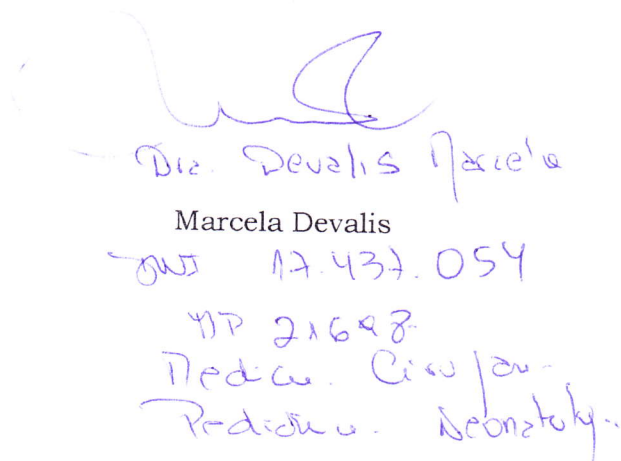 Dra. Devalis Marcela
Marcela Devalis
DNI 17.437.054
MP 21698
Medica Cirujan
Pediatra Neonatolg.